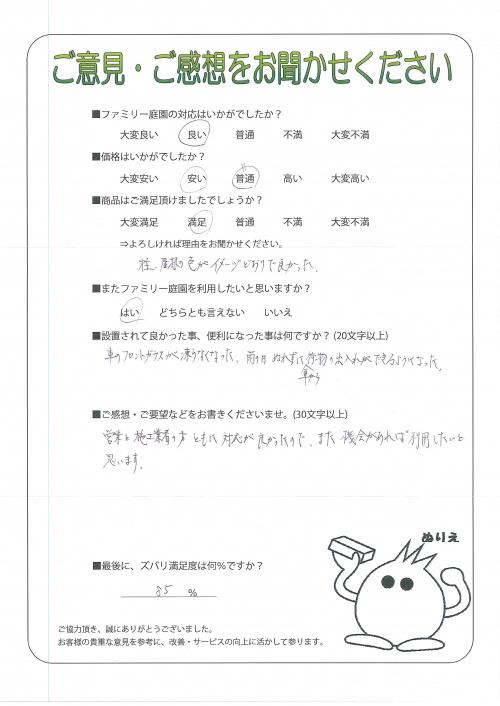 ご意見・ご感想をお聞かせください
■ファミリー庭園の対応はいかがでしたか？
大変良い 良い 普通 不満 大変不満
■価格はいかがでしたか？
大変安い 安い 普通 高い 大変高い
■商品はご満足頂けましたでしょうか？
大変満足 満足 普通 不満 大変不満
⇒よろしければ理由をお聞かせください。
柱、屋根の色がイメージどおりで良かった。
■またファミリー庭園を利用したいと思いますか？
はい どちらとも言えない いいえ
■設置されて良かった事、便利になった事は何ですか？(20文字以上)
車のフロントガラスが凍らなくなった。雨の日 ぬれずに荷物の出入れができるようになった。
車から
■ご感想・ご要望などをお書きくださいませ。(30文字以上)
営業と施工業者の方 ともに 対応が良かったので、また 機会があれば利用したいと
思います。
ぬりえ
■最後に、ズバリ満足度は何%ですか？
85 %
ご協力頂き、誠にありがとうございました。
お客様の貴重な意見を参考に、改善・サービスの向上に活かして参ります。